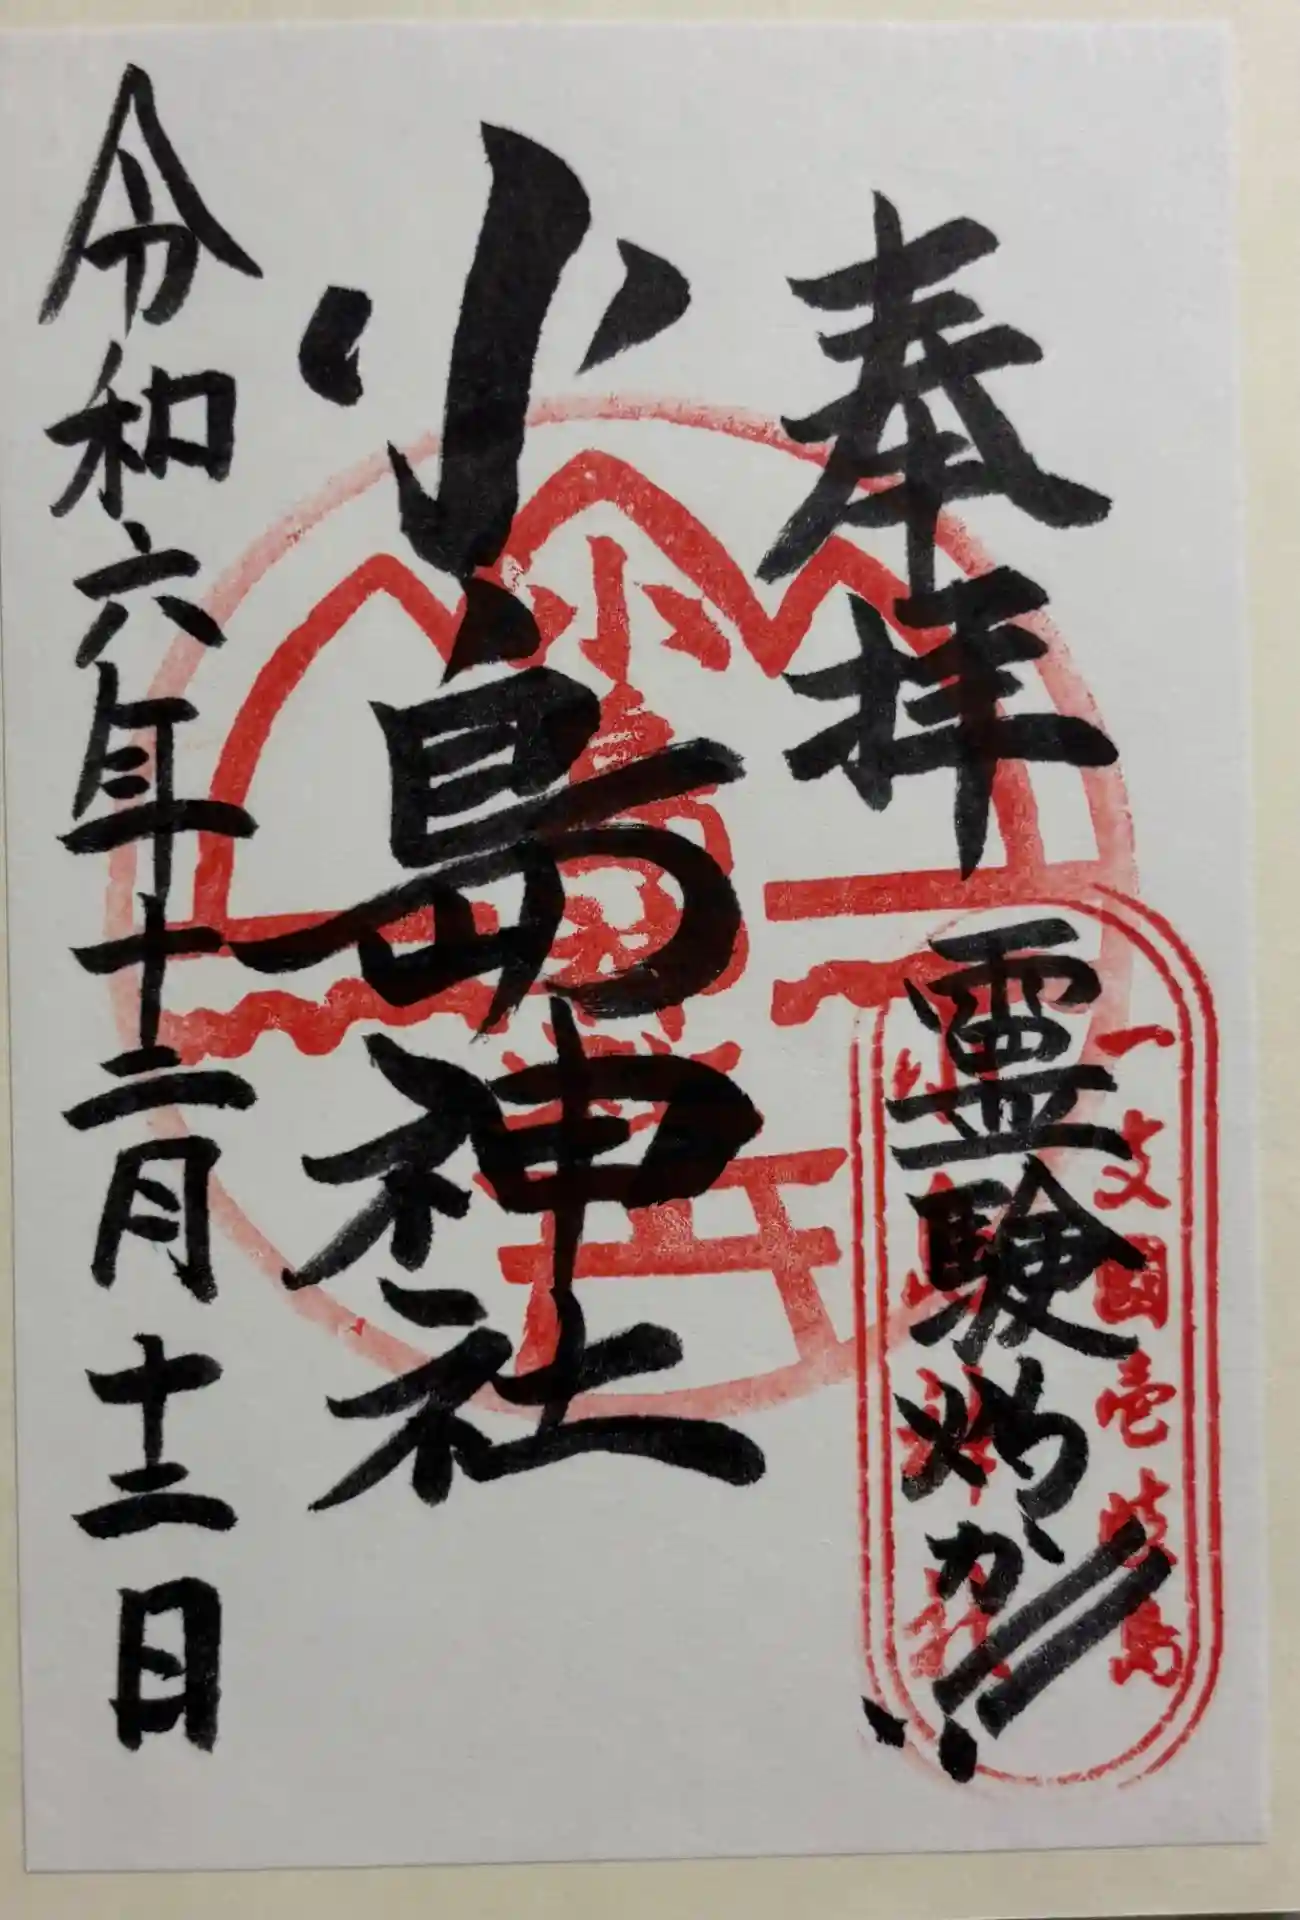 奉拝
霊験灼カ!!
一支國壱岐島
小島神社
小島神社
小島
令和六年十二月十二日